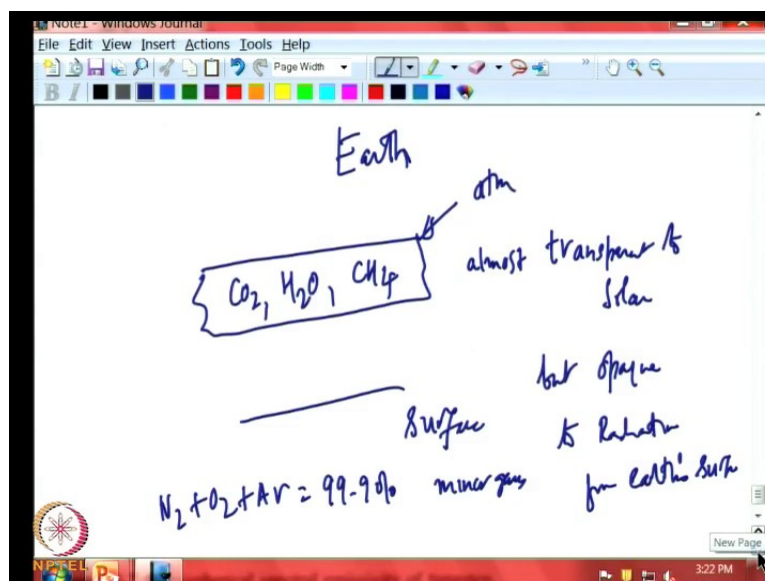 Note1 - Windows Journal
File Edit View Insert Actions Tools Help
Page Width
B I
Earth
atm
CO2, H2O, CH4
almost transparent to
Solar
but opaque
Surface
to Radiation
from earth's surface
N2+O2+Ar = 99.9% minor gases
NPTEL
New Page
3:22 PM